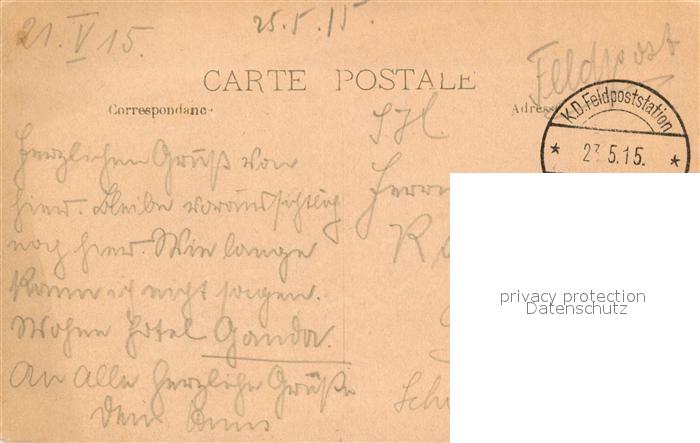 21. V 15. 25.5.15.
Feldpost
CARTE POSTALE
Correspondance
Adresse
K.D. Feldpoststation
* 23.5.15. *
Herzlichen Gruß von
hier. Bleibe voraussichtlich
noch hier. Wie lange
kann ich nicht sagen.
Wohne Hotel Ganda.
An alle herzliche Grüße
Dein
Herrn
privacy protection
Datenschutz